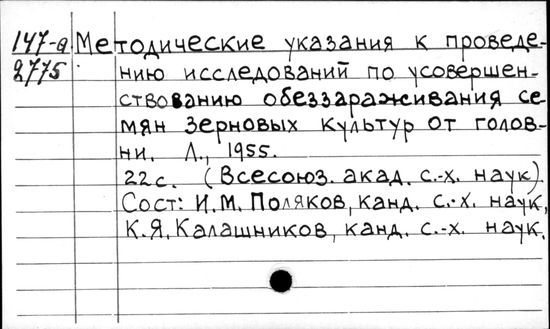 147-а Методические указания к проведе-
2775 нию исследований по усовершен-
ствованию обеззараживания се-
мян зерновых культур от голов-
ни. Л., 1955.
22 с. (Всесоюз. акад. с.-х. наук).
Сост: И.М. Поляков, канд. с.-х. наук,
К.Я. Калашников, канд. с.-х. наук.